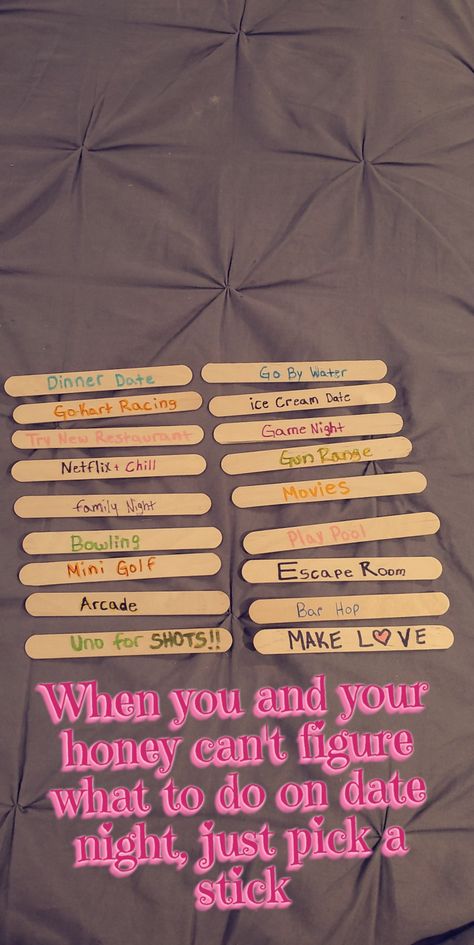 Dinner Date
Go-Kart Racing
Try New Restaurant
Netflix + Chill
Family Night
Bowling
Mini Golf
Arcade
Uno for SHOTS!!
Go By Water
ice Cream Date
Game Night
Gun Range
Movies
Play Pool
Escape Room
Bar Hop
MAKE L♡VE
When you and your
honey can't figure
what to do on date
night, just pick a
stick